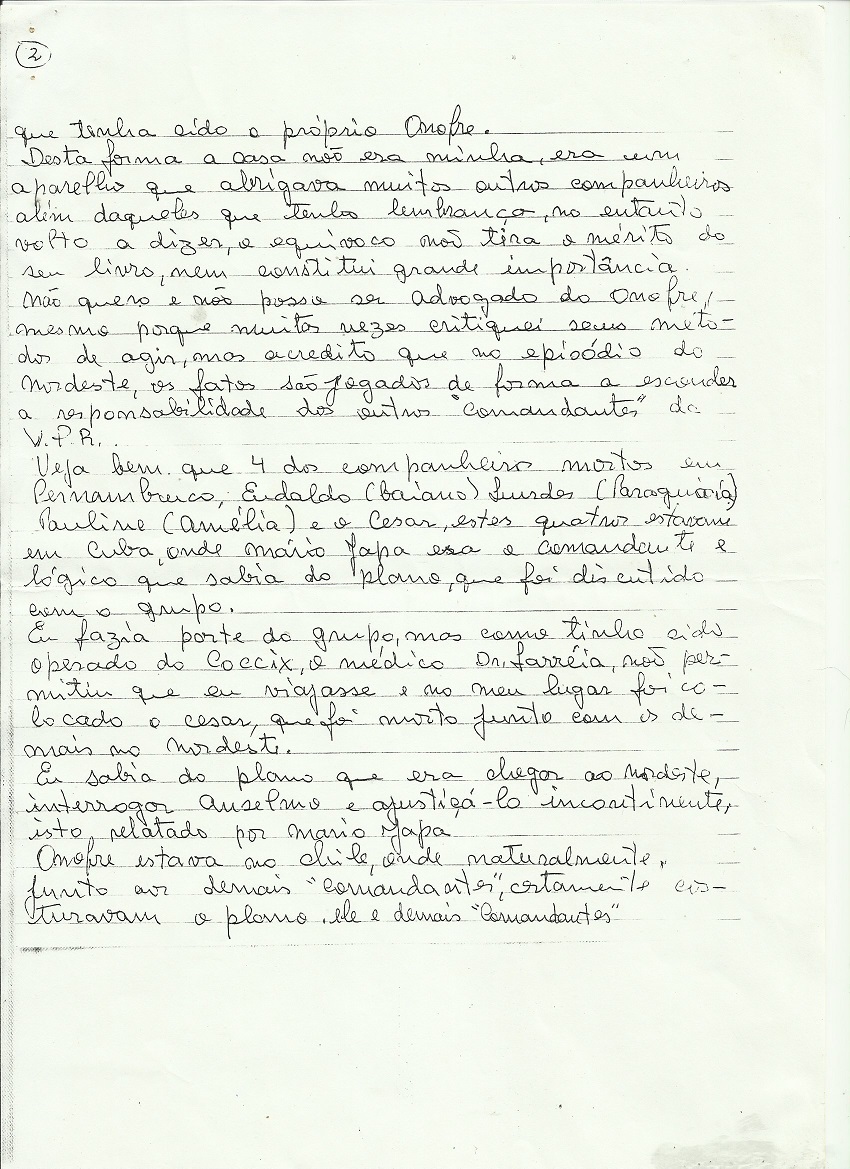 2
que tinha sido o próprio Onofre.
Desta forma a casa não era minha, era um
aparelho que abrigava muitos outros companheiros
além daqueles que tenho lembrança, no entanto
volto a dizer, o equivoco não tira o mérito do
seu livro, nem constitui grande importância.
Não quero e não posso ser advogado do Onofre,
mesmo porque muitas vezes critiquei seus méto-
dos de agir, mas acredito que no episódio do
Nordeste, os fatos são jogados de forma a esconder
a responsabilidade dos outros "comandantes" da
V.P.R..
Veja bem que 4 dos companheiros mortos em
Pernambuco, Eudaldo (baiano) Lurdes (Paraguária)
Pauline (Amélia) e o Cesar, estes quatros estavam
em Cuba, onde Mário Japa era o comandante e
lógico que sabia do plano, que foi discutido
com o grupo.
Eu fazia parte do grupo, mas como tinha sido
operado do Coccix, o médico Dr. Larréia, não per-
mitiu que eu viajasse e no meu lugar foi co-
locado o cesar, que foi morto junto com os de-
mais no Nordeste.
Eu sabia do plano que era chegar ao Nordeste,
interrogar Anselmo e ajustiçá-lo incontinente,
isto relatado por Mario Japa
Onofre estava no chile, onde naturalmente,
junto aos demais "comandantes", certamente cos-
turavam o plano. ele e demais "Comandantes"